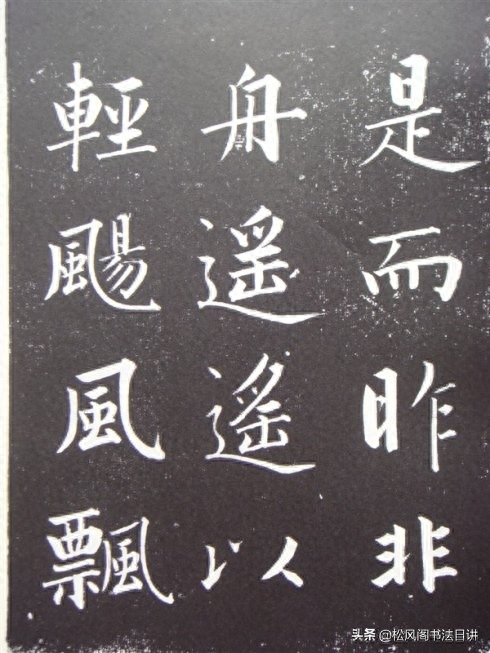 是而昨非
舟遥遥以
輕颺風飄
头条 @松风阁书法目讲